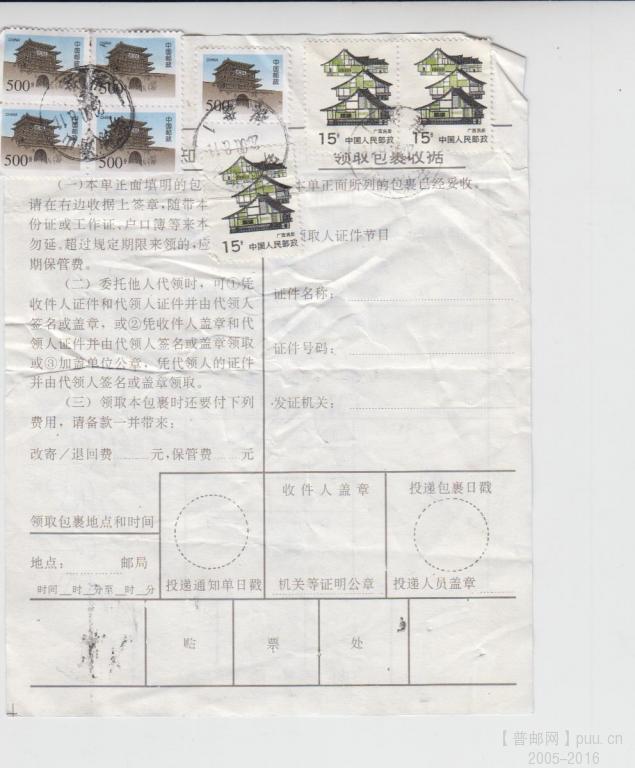 CHINA
中国邮政
500分
CHINA
中国邮政
500分
CHINA
中国邮政
500分
500分
500分
15分
广西民居
中国人民邮政
15分
广西民居
中国人民邮政
15分
广西民居
中国人民邮政
知
(一)本单正面填明的包
请在右边收据上签章,随带本
份证或工作证、户口簿等来本
勿延。超过规定期限来领的,应
期保管费。
(二)委托他人代领时,可①凭
收件人证件和代领人证件并由代领人
签名或盖章,或②凭收件人盖章和代
领人证件并由代领人签名或盖章领取
或③加盖单位公章,凭代领人的证件
并由代领人签名或盖章领取。
(三)领取本包裹时还要付下列
费用,请备款一并带来:
改寄/退回费 元,保管费 元
领取包裹收据
本单正面所列的包裹已经妥收。
领取人证件节目
证件名称:
证件号码:
发证机关:
领取包裹地点和时间
地点: 邮局
时间 时 分至 时 分
投递通知单日戳
收件人盖章
机关等证明公章
投递包裹日戳
投递人员盖章
贴 票 处
【普邮网】puu.cn
2005-2016